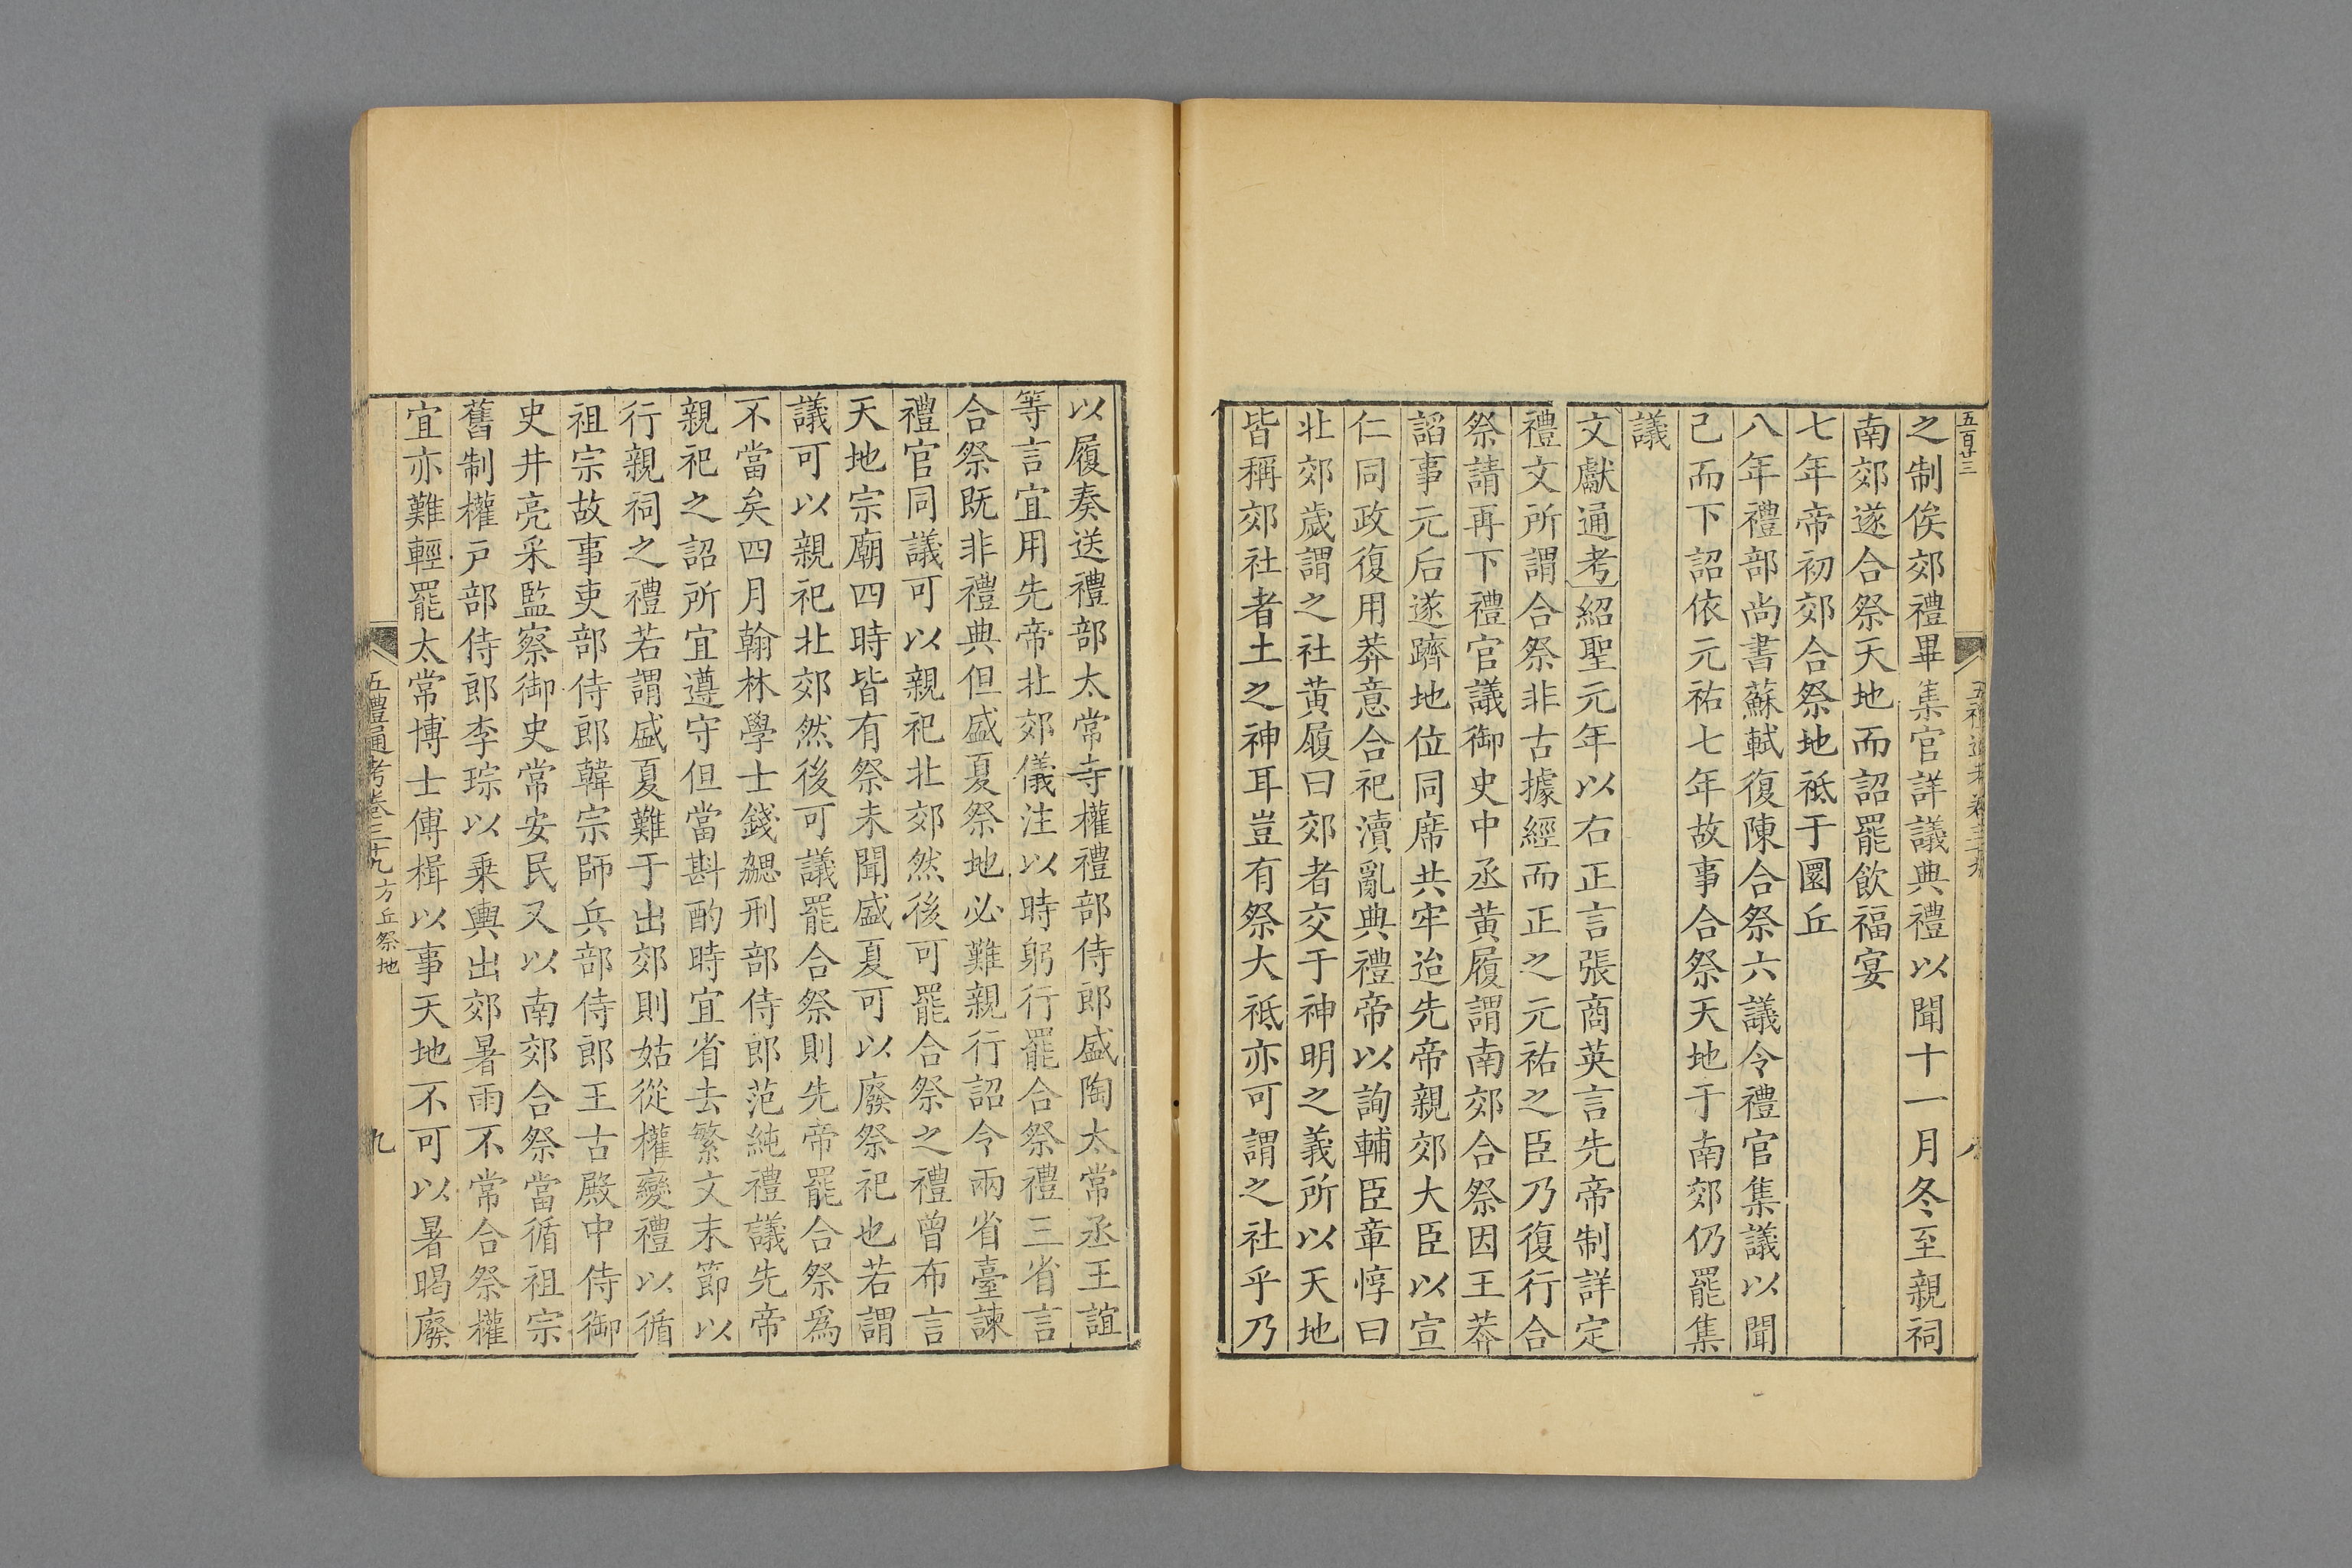 五百廿三
之制俟郊禮畢集官詳議典禮以聞十一月冬至親祠
南郊遂合祭天地而詔罷飲福宴
七年帝初郊合祭地祇于圜丘
八年禮部尚書蘇軾復陳合祭六議令禮官集議以聞
己而下詔依元祐七年故事合祭天地于南郊仍罷集
議
文獻通考紹聖元年以右正言張商英言先帝制詳定
禮文所謂合祭非古據經而正之元祐之臣乃復行合
祭請再下禮官議御史中丞黃履謂南郊合祭因王莽
諂事元后遂躋地位同席共牢迨先帝親郊大臣以宣
仁同政復用莽意合祀瀆亂典禮帝以詢輔臣章惇曰
北郊歲謂之社黃履曰郊者交于神明之義所以天地
皆稱郊社者土之神耳豈有祭大祇亦可謂之社乎乃
以履奏送禮部太常寺權禮部侍郎盛陶太常丞王誼
等言宜用先帝北郊儀注以時躬行罷合祭禮三省言
合祭既非禮典但盛夏祭地必難親行詔令兩省臺諫
禮官同議可以親祀北郊然後可罷合祭之禮曾布言
天地宗廟四時皆有祭未聞盛夏可以廢祭祀也若謂
議可以親祀北郊然後可議罷合祭則先帝罷合祭為
不當矣四月翰林學士錢勰刑部侍郎范純禮議先帝
親祀之詔所宜遵守但當斟酌時宜省去繁文末節以
行親祠之禮若謂盛夏難于出郊則姑從權變禮以循
祖宗故事吏部侍郎韓宗師兵部侍郎王古殿中侍御
史井亮采監察御史常安民又以南郊合祭當循祖宗
舊制權戶部侍郎李琮以乘輿出郊暑雨不常合祭權
宜亦難輕罷太常博士傅楫以事天地不可以暑暍廢
五禮通考卷三十九方丘祭地
九